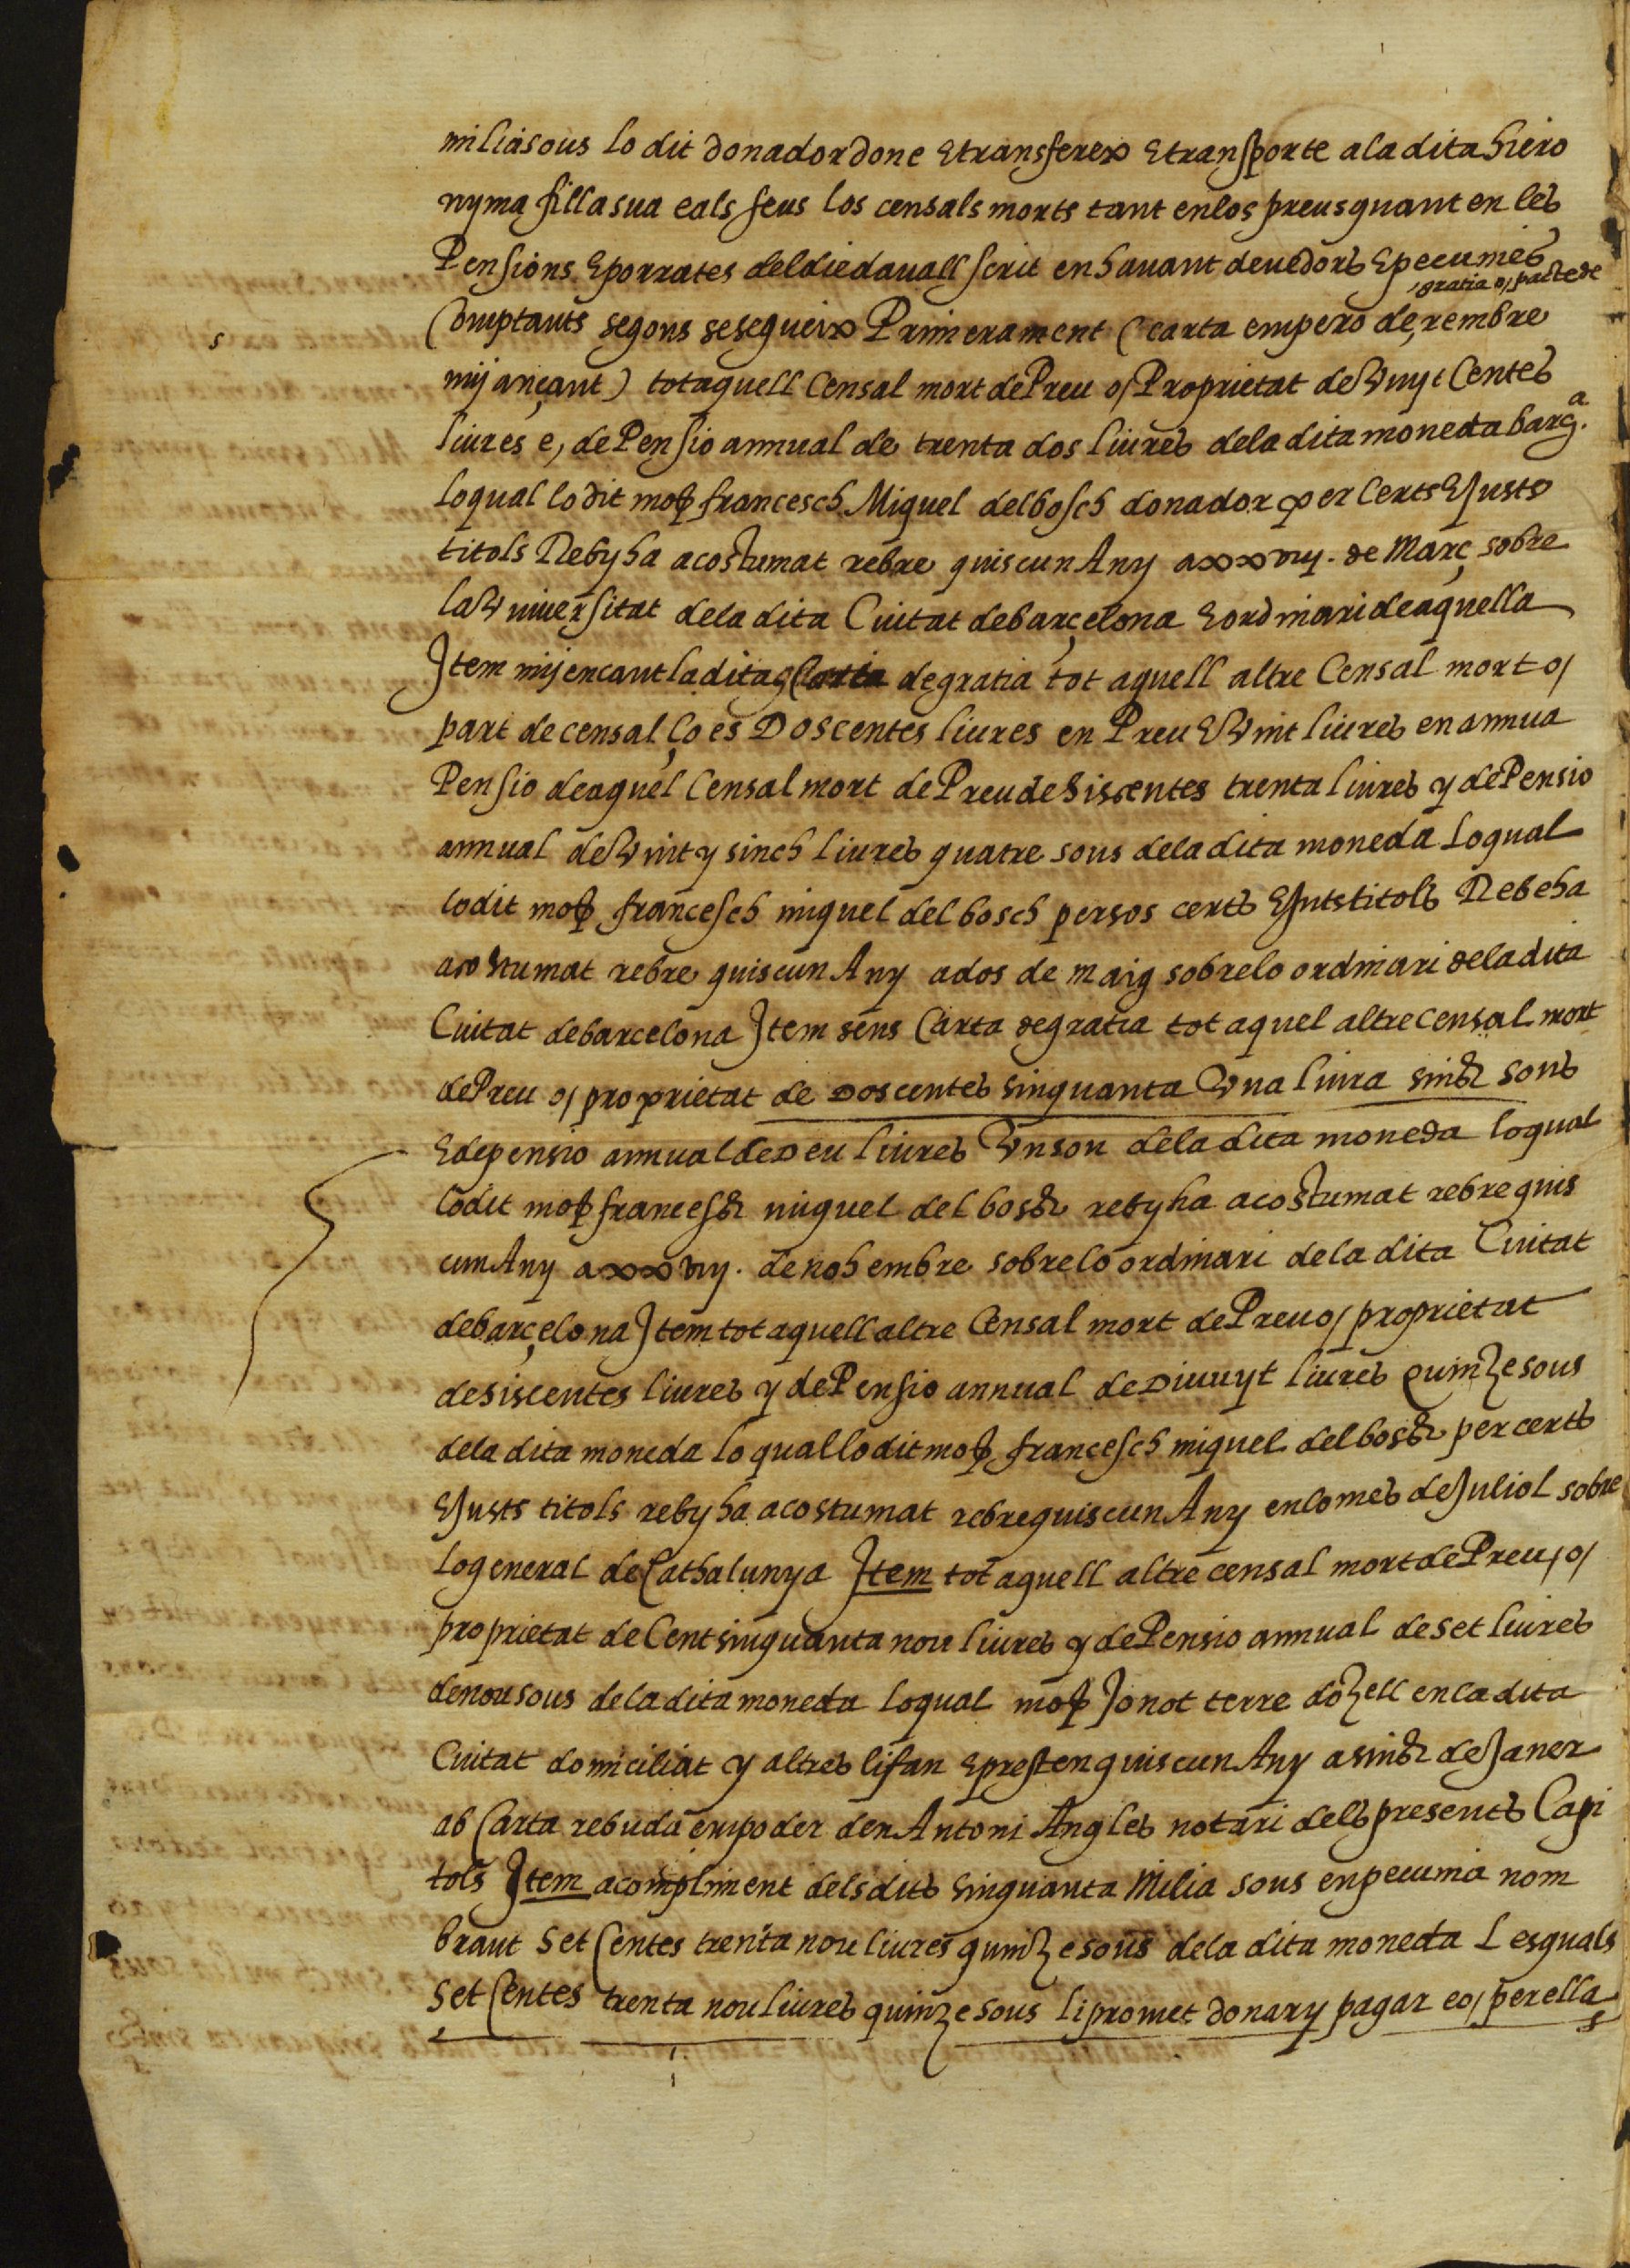 milia sous lo dit donador done E transferex E transporte a la dita hiero
nyma filla sua e als seus los censals morts tant en los preus quant en les
Pensions E porrates del die davall scrit en havant devedors E pecunies
gratia o, pacte de
Comptants segons se segueix Primerament (carta empero de, rembre
mijançant) tot aquell Censal mort de Preu o, Proprietat de Vuyt Centes
liures e, de Pensio annual de trenta dos liures de la dita moneda barç.a
lo qual lo dit moss francesch Miquel delbosch donador per Certs E Justs
titols Reb y ha acostumat rebre quiscun Any a xxviij. de Març sobre
la Vniversitat de la dita Ciutat de barçelona E ordinari de aquella
Item mijençant la dita Carta de gratia tot aquell altre Censal mort o,
part de censal ço es Doscentes liures en Preu E Vint liures en annua
Pensio de aquel Censal mort de Preu de Siscentes trenta liures y de Pensio
annual de Vint y sinch liures quatre sous de la dita moneda Lo qual
lo dit moss francesch miquel delbosch per sos certs E Juts titols Reb e ha
acostumat rebre quiscun Any a dos de maig sobre lo ordinari de la dita
Ciutat de barcelona Item sens Carta de gratia tot aquel altre Censal mort
de Preu o, proprietat de Doscentes sinquanta Vna liura sinch sous
E de pensio annual de Deu liures Vn sou de la dita moneda lo qual
lo dit moss francesch miquel delbosch reb y ha acostumat rebre quis
cun Any a xxviij. de nohembre sobre lo ordinari de la dita Ciutat
de barçelona Item tot aquell altre Censal mort de Preu o, proprietat
de siscentes liures y de Pensio annual de Divuyt liures Quinze sous
de la dita moneda lo qual lo dit moss francesch miquel delbosch per certs
E Justs titols reb y ha acostumat rebre quiscun Any en lo mes de Juliol sobre
lo general de Cathalunya Item tot aquell altre censal mort de Preu, o,
proprietat de Cent sinquanta nou liures y de Pensio annual de set liures
de nou sous de la dita moneda lo qual moss Jonot terre dozell en la dita
Ciutat domiciliat y altres li fan E presten quiscun Any a sinch de Janer
ab Carta rebuda en poder den Antoni Angles notari dels presents Capi
tols Item a compliment dels dits sinquanta Milia sous en pecunia nom
brant Set Centes trenta nou liures quinze sous de la dita moneda Lesquals
Set Centes trenta nou liures quinze sous li promet donar y pagar e o, per ella